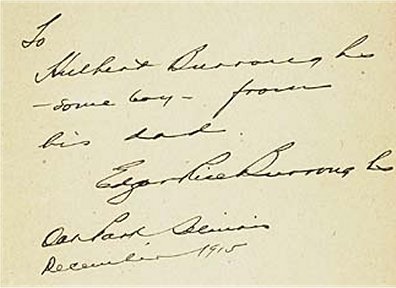 To
Hulbert Burroughs
- some boy - from
his dad.
Edgar Rice Burroughs
Oak Park Illinois
December 1915